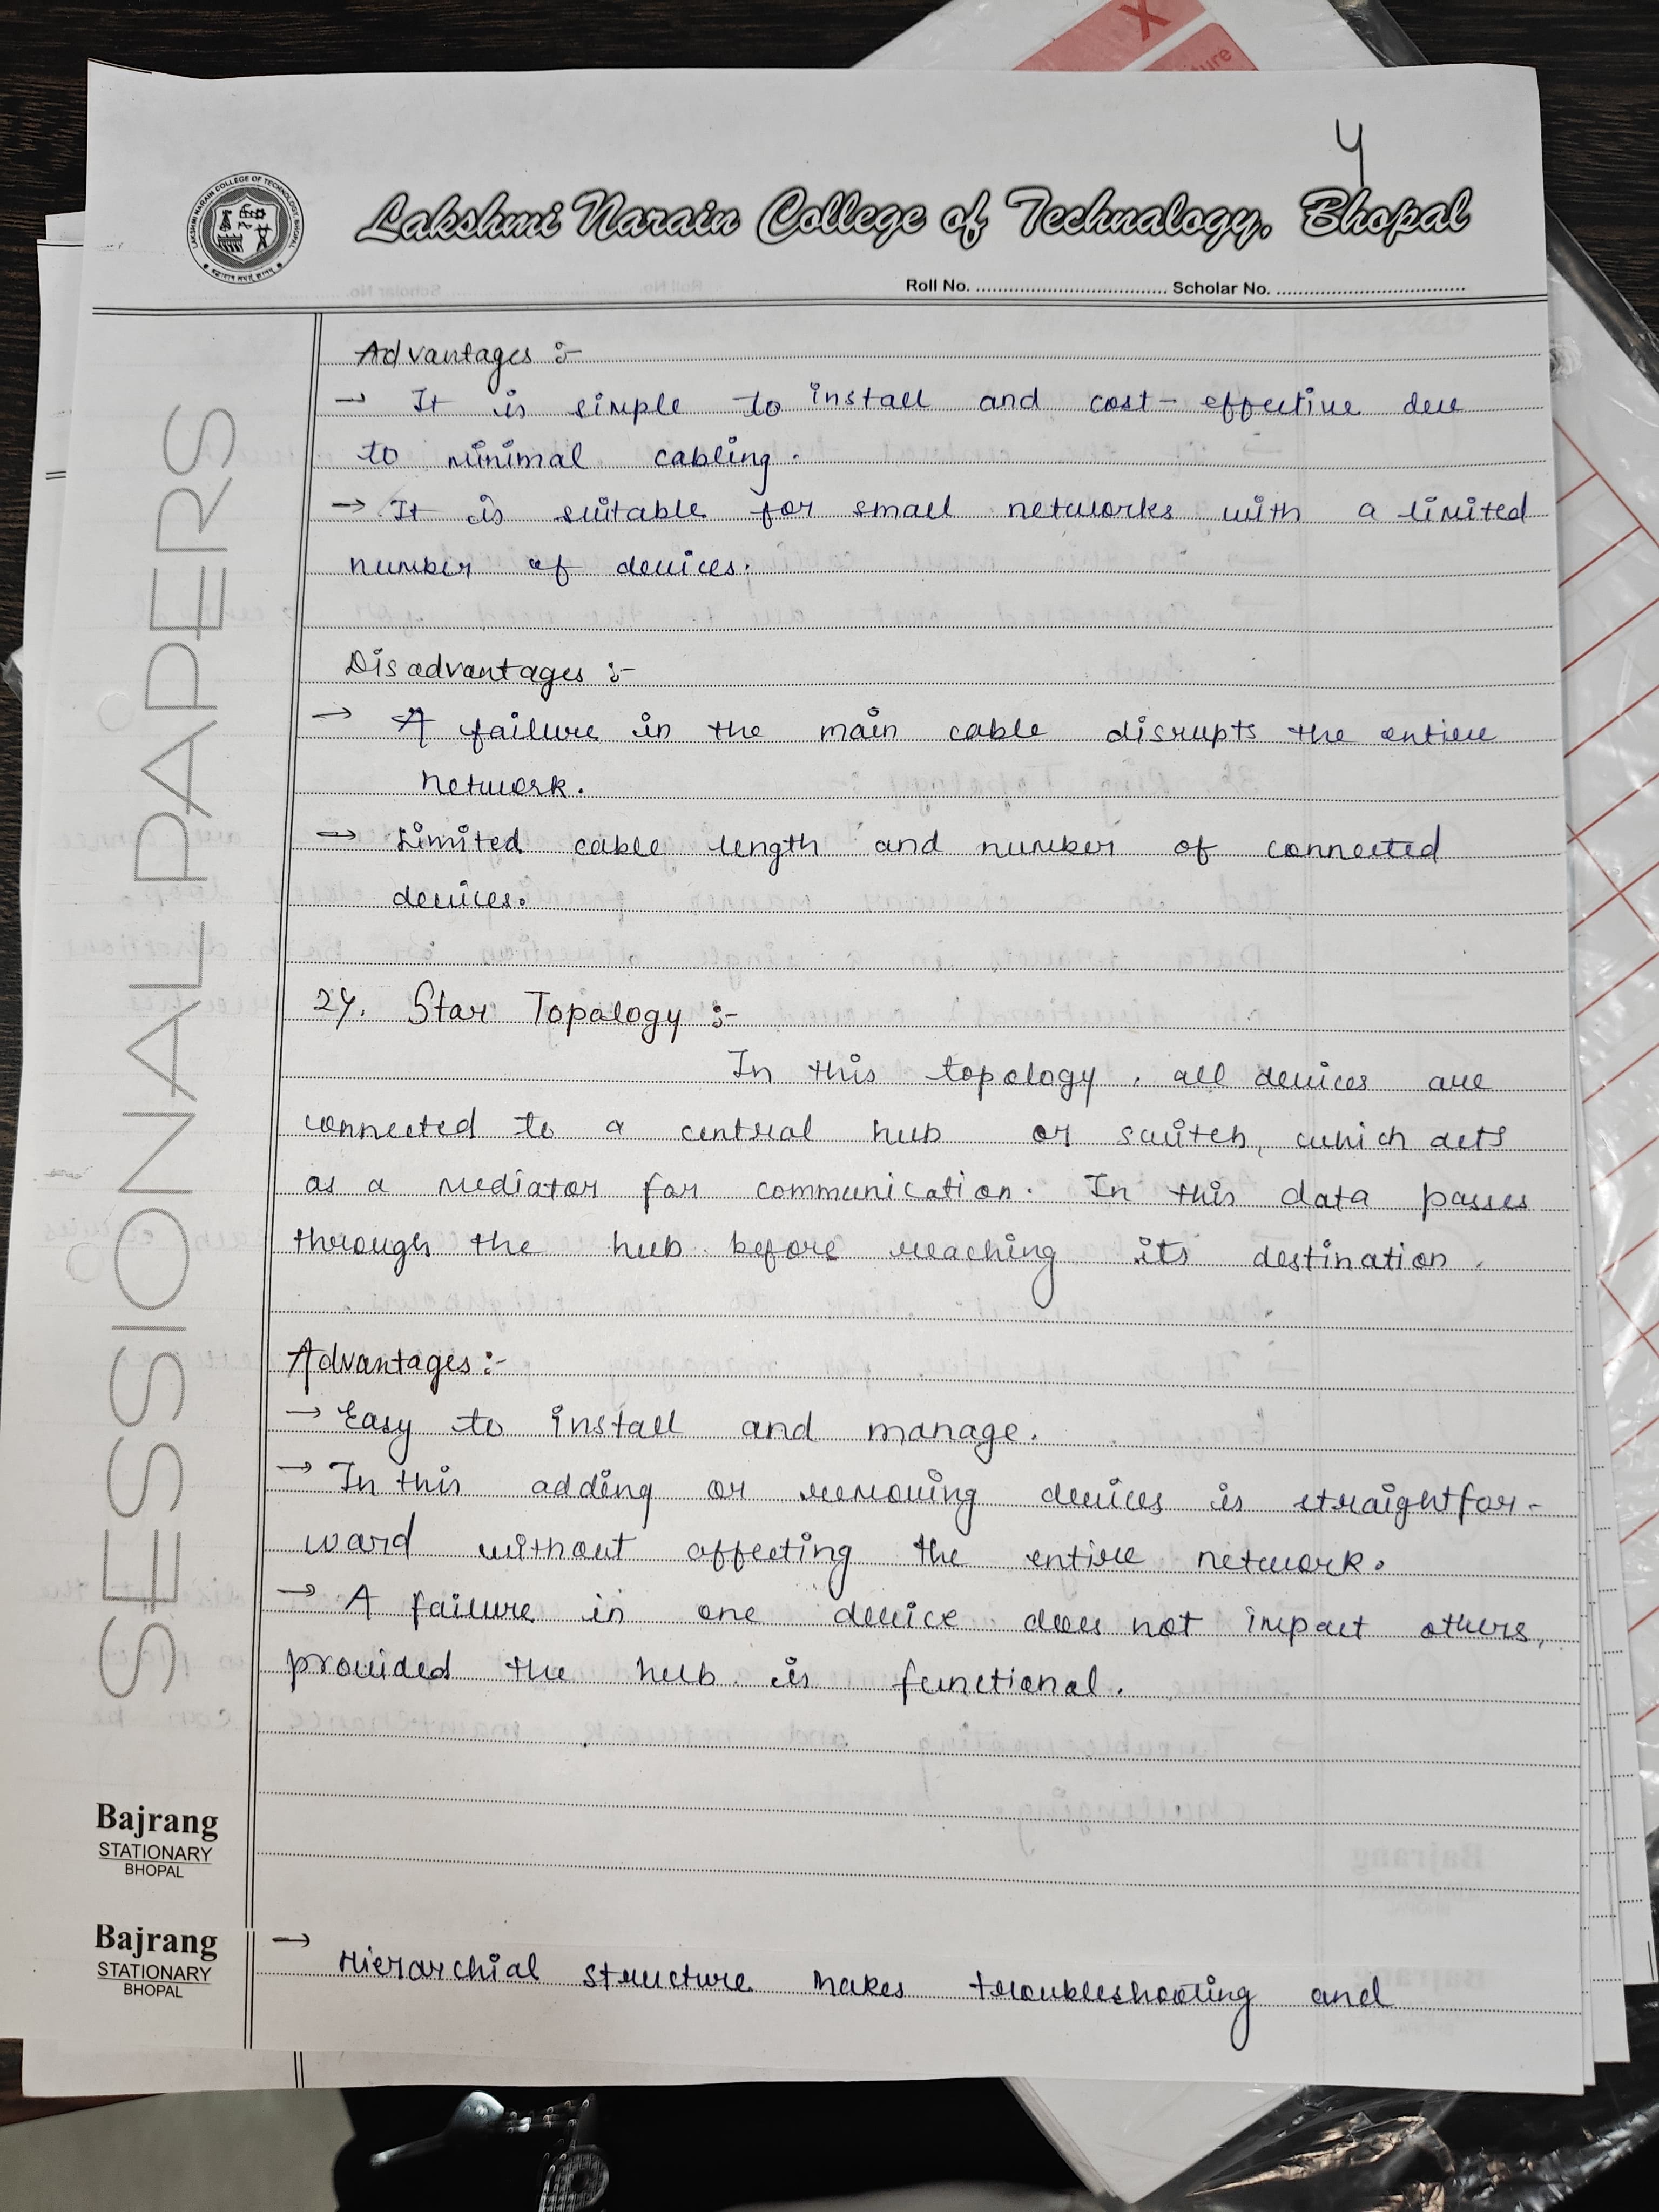 4
Lakshmi Narain College of Technalogy, Bhopal
Roll No. ........................................ Scholar No. ........................................
SESSIONAL PAPERS
Advantages :-
→ It is simple to install and cost-effective due
to minimal cabling.
→ It is suitable for small networks with a limited
number of devices.
Disadvantages :-
→ A failure in the main cable disrupts the entire
network.
→ Limited cable length and number of connected
devices.
2). Star Topology :-
In this topology, all devices are
connected to a central hub or switch, which acts
as a mediator for communication. In this data passes
through the hub before reaching its destination.
Advantages :-
→ Easy to install and manage.
→ In this adding or removing devices is straightfor-
ward without affecting the entire network.
→ A failure in one device does not impact others,
provided the hub is functional.
Bajrang
STATIONARY
BHOPAL
Bajrang
STATIONARY
BHOPAL
→ Hierarchial structure makes troubleshooting and